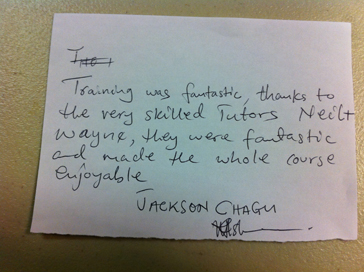 The
Training was fantastic, thanks to
the very skilled Tutors Neil +
Wayne, they were fantastic
and made the whole course
enjoyable
JACKSON CHAGU